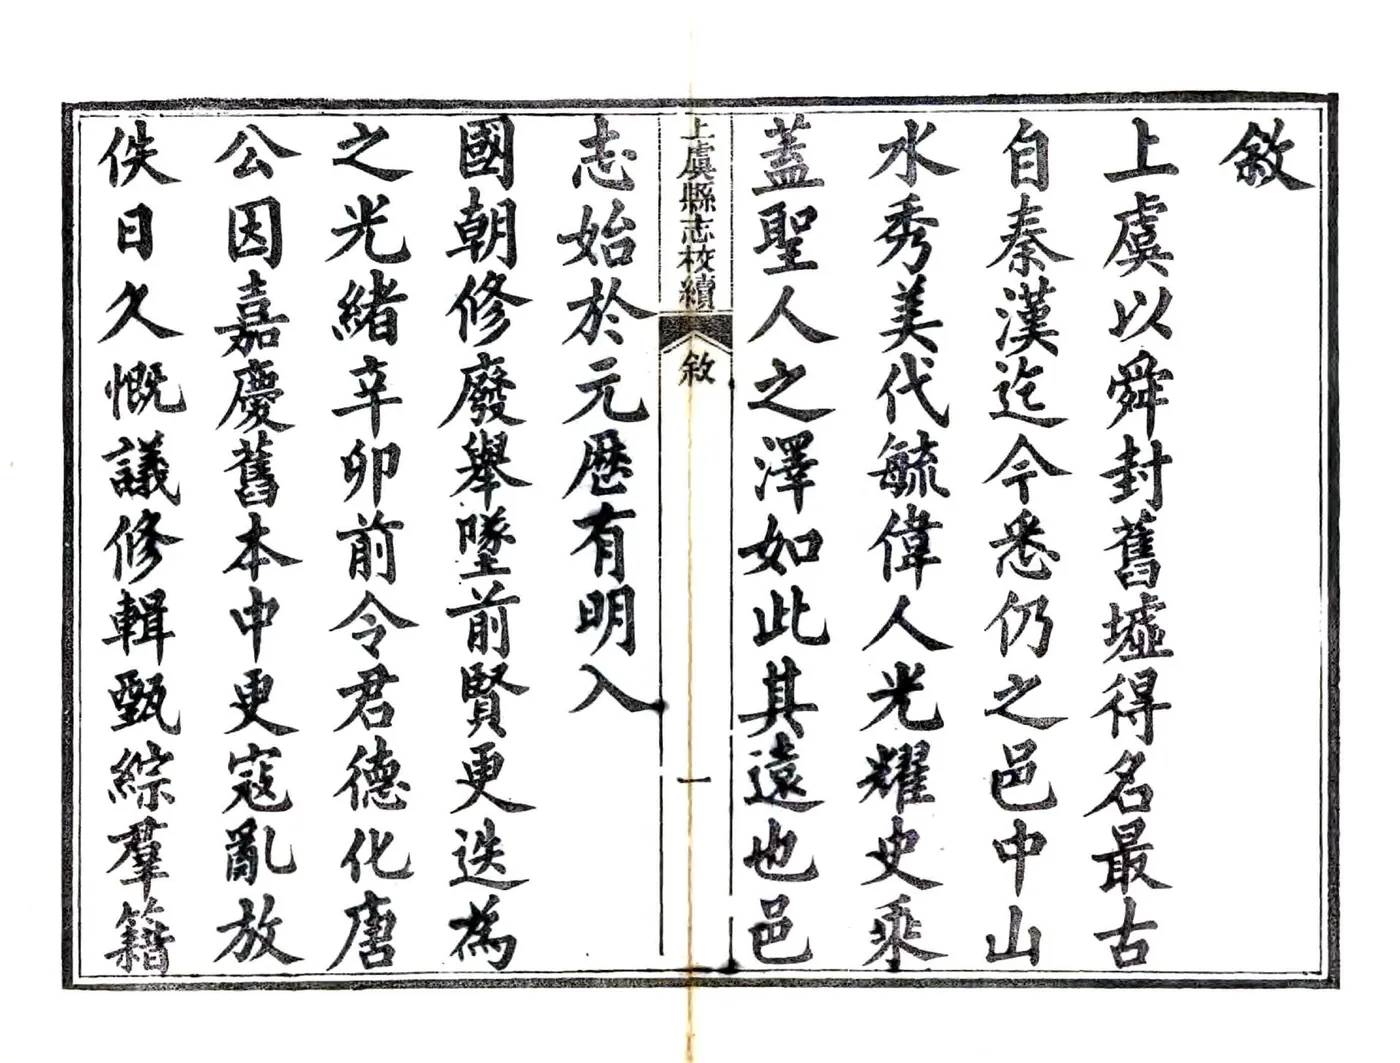 敘
上虞以舜封舊墟得名最古
自秦漢迄今悉仍之邑中山
水秀美代毓偉人光耀史乘
蓋聖人之澤如此其遠也邑
上虞縣志校續
敘
一
志始於元歷有明入
國朝修廢舉墜前賢更迭為
之光緒辛卯前令君德化唐
公因嘉慶舊本中更寇亂放
佚日久慨議修輯甄綜羣籍